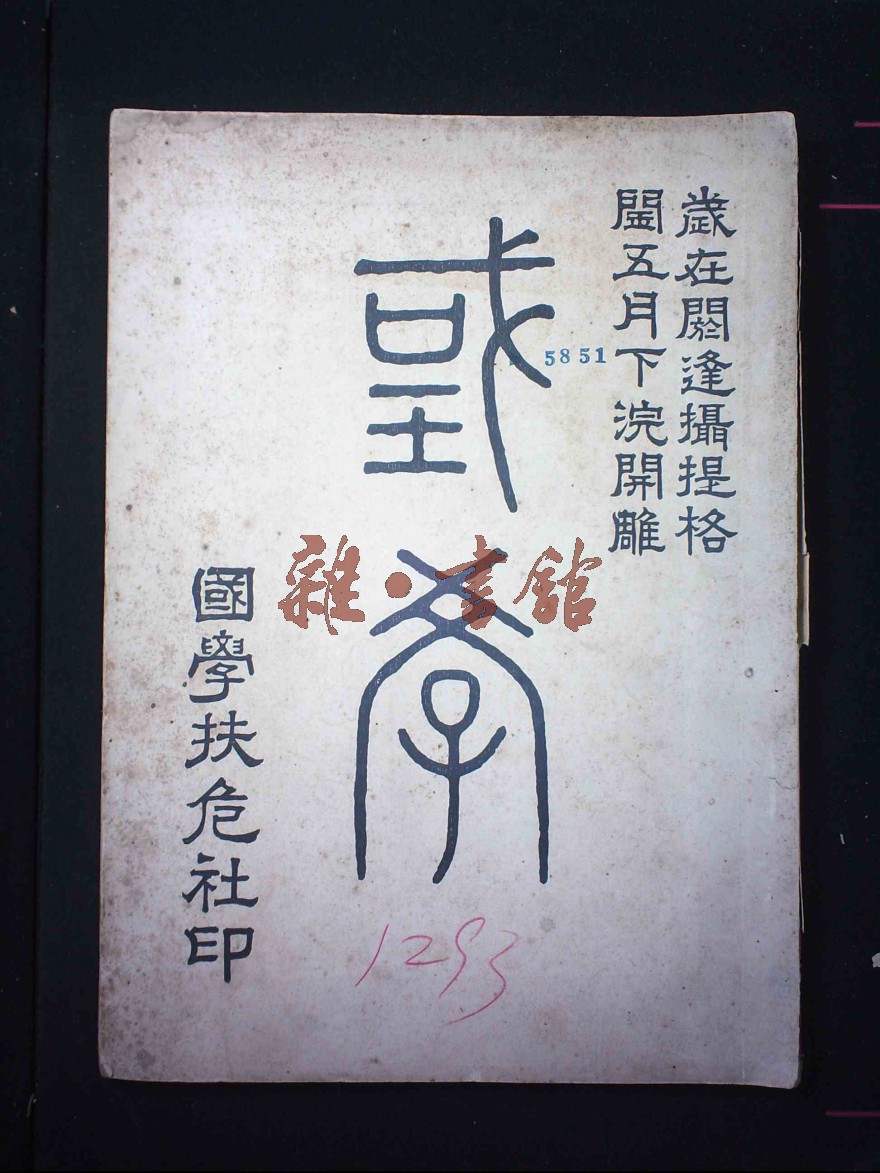 歲在閼逢攝提格
閏五月下浣開雕
國學
5851
雜·書館
國學扶危社印
1293